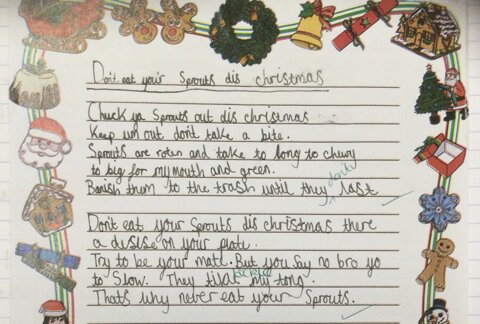 Don't eat your Sprouts dis christmas
Chuck ya Sprouts out dis christmas
Keep um out don't take a bite.
Sprouts are roten and take to long to chuwy
to big for my mouth and green.
don't
Banish them to the trash until they last
Don't eat your Sprouts dis christmas there
a desise on your plate.
Try to be your mate. But you say no bro yo
to Slow. They my tong.
That's why never eat your Sprouts.